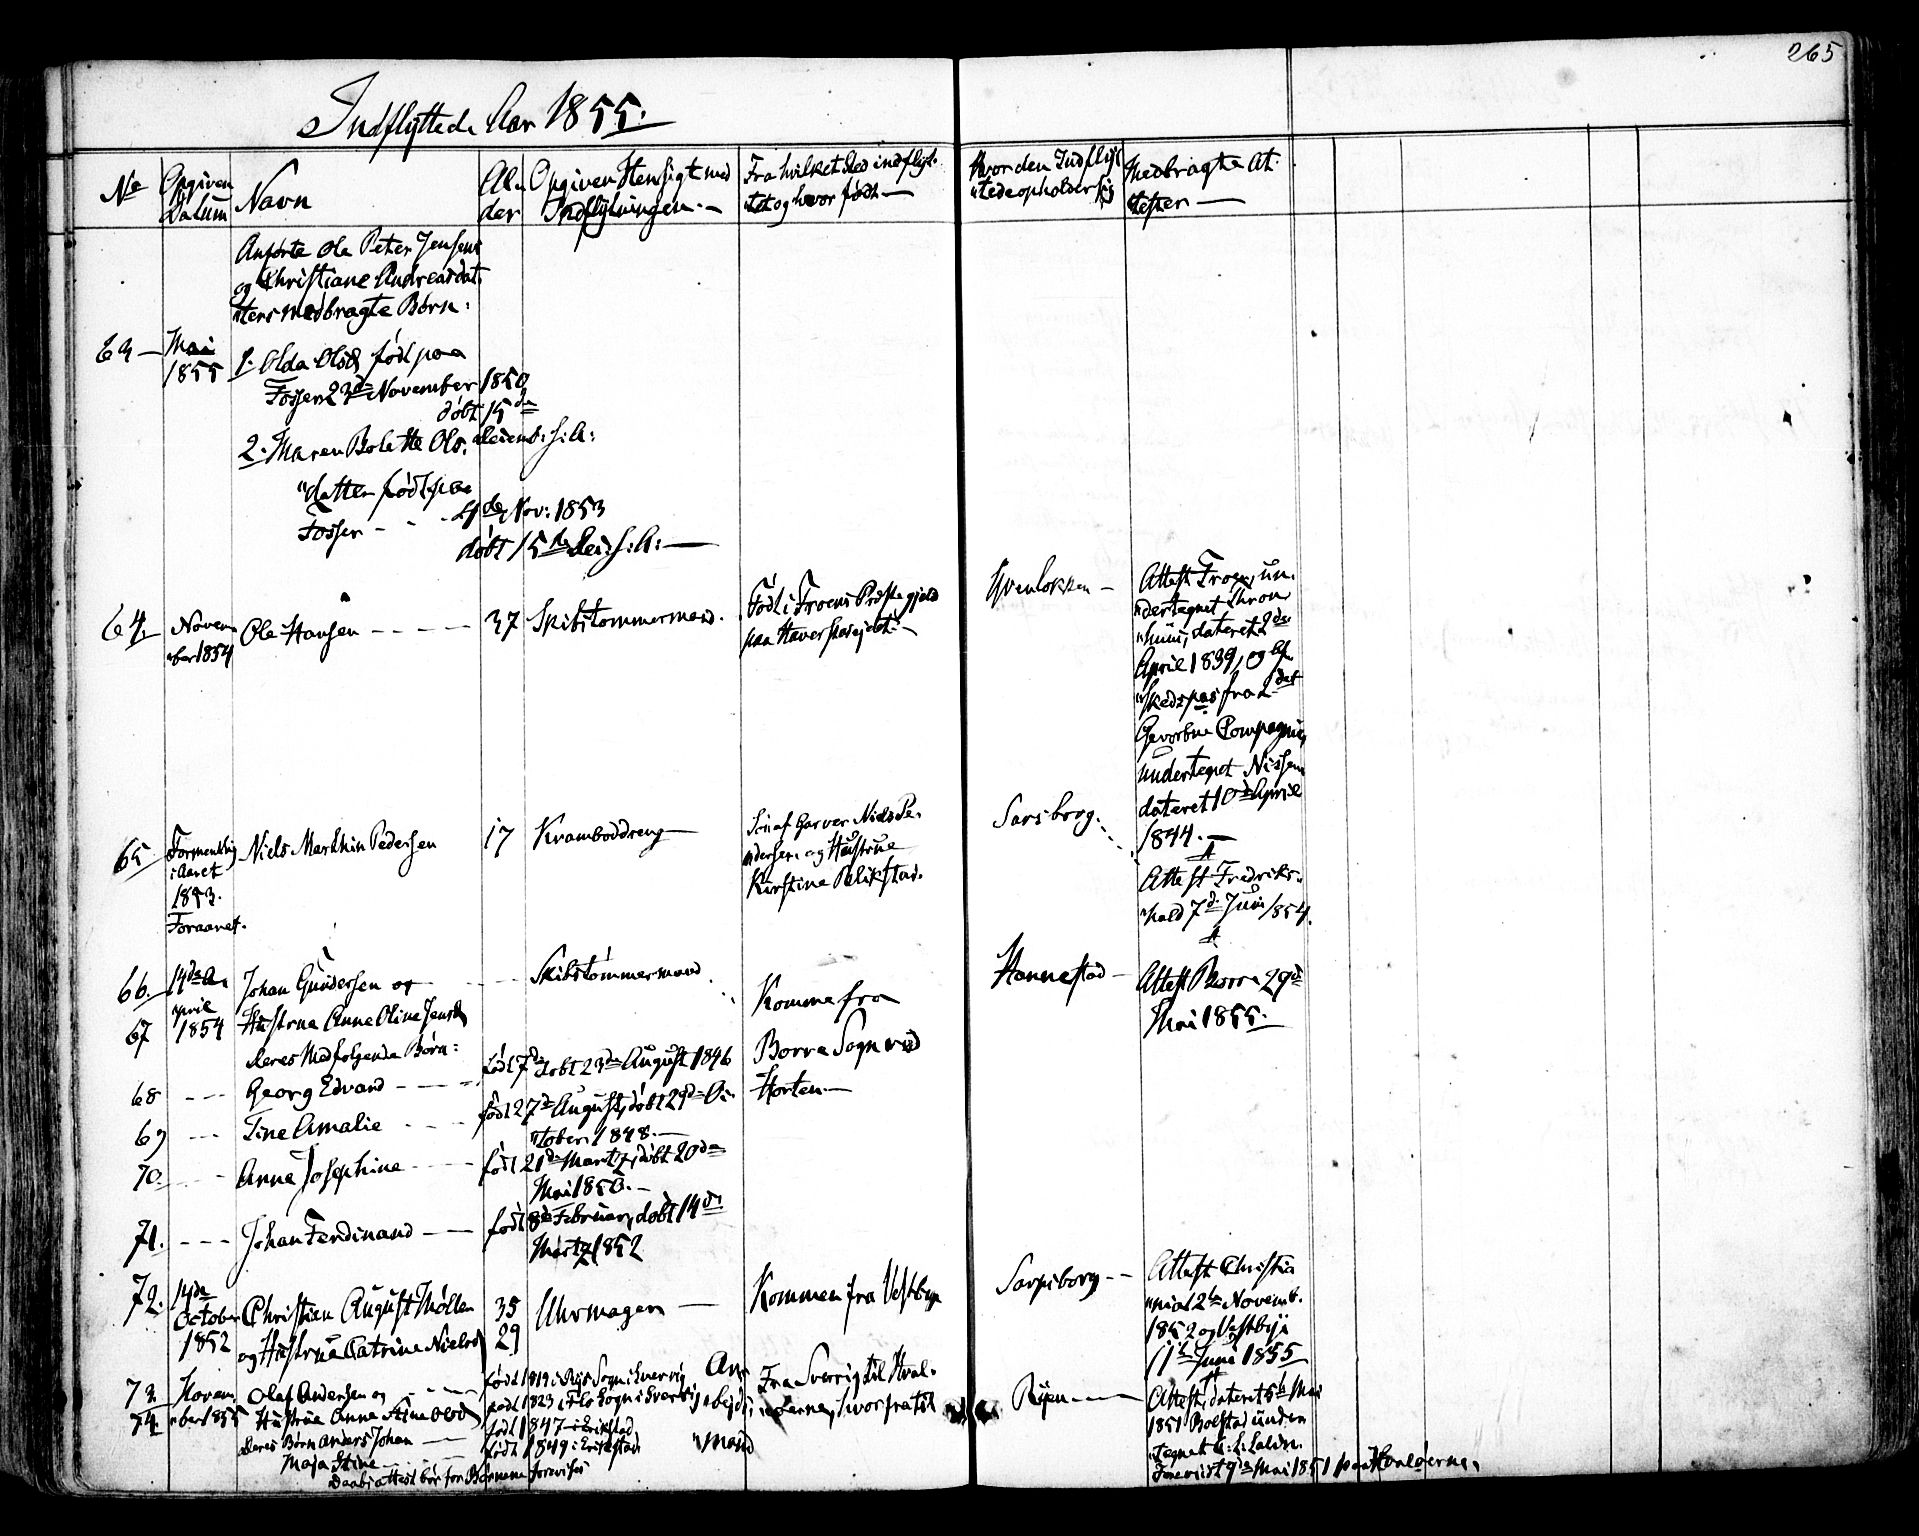 265
Indflyttede Aar 1855.
No Opgiven Datum Navn Alder Opgiven Hensigt med Indflytningen. Fra hvilket Sted indflyttet og hvor født Hvor den Indflyttede opholder sig Medbragte Attester
Anførte Ole Peter Jensens
og Christiane Andreasdat
"ters medbragte Børn:
63 Mai
1855
1. Olda Olsd født paa
Fosser 23de November 1850
døbt 15de
Decemb: s: A:
2. Maren Bolette Ols.
"datter født paa
Fosser - - - Nov: 1853
døbt 15de Dec: s: A:
64. Novem
"ber 1854
Ole Hansen - - - -
37
Skibstømmermand.
Født i Præstegjeld
paa
Attest un.
"dertegnet
dateret 2de
April 1839, og Af
"skedspas fra det
Gevorbne Compagnie,
undertegnet Nissen
dateret 10de April
1844.
65.
i Aaret
1853.
Foraaret.
Niels Marthin Pedersen
17
Kramboddreng
Søn af Garver Niels Pe.
"dersen og Hustrue
Kirstine
Sarsborg.
Attest Fredriks.
"hald 7d Juni 1854.
66. 14de A.
"pril
1854
Johan Gundersen og
Skibstømmermand
Komne fra
Borre Sogn ved
Horten.
Hannestad
Attest Borre 29d
Mai 1855.
67 Hustrue Anne Oline Jensd
Deres Medfølgende Børn:
68 - - - Georg Edvard - - - født 7de døbt 23de August 1846
69 - - - Tine Amalie - - - født 27de August, døbt 29de Oc
"tober 1848.
70. - - - Anne Josephine - - - født 21de Martz, døbt 20de
Mai 1850.
71. - - - Johan Ferdinand født 8de Februar, døbt 14d.
Martz 1852
72. 14de
October
1852
Christian August Møller
og Hustrue Catrine Nielsd
35
29
Uhrmager
Kommen fra Vestbye
Sarpsborg - -
Attest Christia
"nia 2de Novemb.
1852 og Vestbye
11te Juni 1855
73. Novem
74. "ber 1855
Olaf Andersen og
Hustrue Anne Stine Olsd
Deres Børn Anders Johan
Maja Stine
født 1819 i Sogn i Sverrig
født 1823 i Flo Sogn i Sverrig
født 1847
født 1849
Ar
"bejds
"mand
Fra Sverrig til Hval.
"øerne, hvorfra til
Attest, dateret 5te Mai
1851 Bolstad under
"tegnet
Forevist 9de Mai 1851 paa Hvaløerne.
Daabsattest bør for Børnene forevises